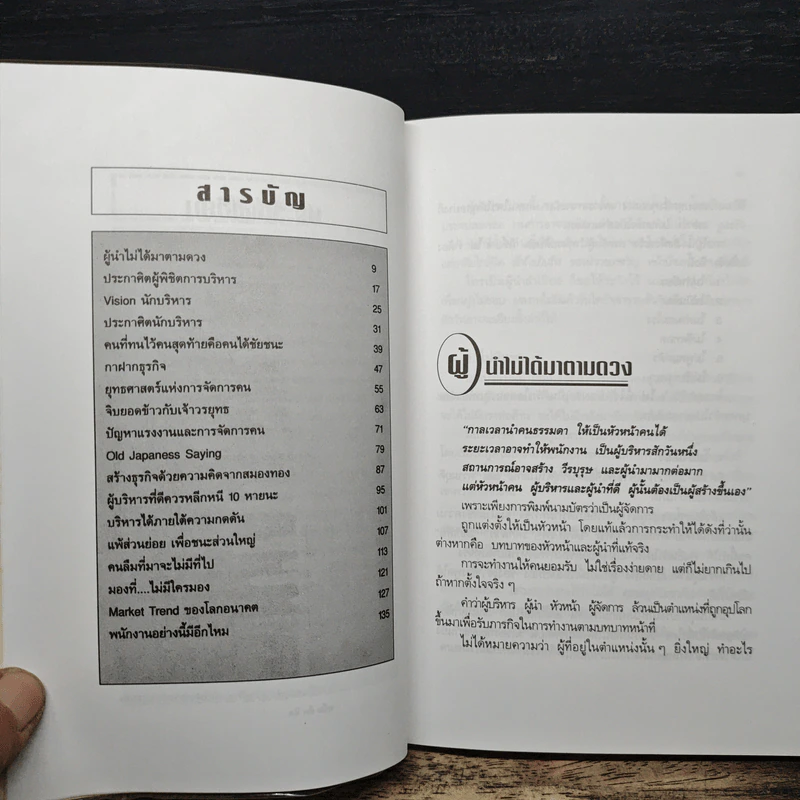 สารบัญ
ผู้นำไม่ได้มาตามดวง 9
ประกาศิตผู้พิชิตการบริหาร 17
Vision นักบริหาร 25
ประกาศิตนักบริหาร 31
คนที่ทนไว้คนสุดท้ายคือคนได้ชัยชนะ 39
กาฝากธุรกิจ 47
ยุทธศาสตร์แห่งการจัดการคน 55
จิบยอดข้าวกับเจ้าวรยุทธ 63
ปัญหาแรงงานและการจัดการคน 71
Old Japaness Saying 79
สร้างธุรกิจด้วยความคิดจากสมองทอง 87
ผู้บริหารที่ดีควรหลีกหนี 10 หายนะ 95
บริหารได้ภายใต้ความกดดัน 101
แพ้ส่วนย่อย เพื่อชนะส่วนใหญ่ 107
คนลืมที่มาจะไม่มีที่ไป 113
มองที่....ไม่มีใครมอง 121
Market Trend ของโลกอนาคต 127
พนักงานอย่างนี้มีอีกไหม 135
ผู้นำไม่ได้มาตามดวง
“กาลเวลานำคนธรรมดา ให้เป็นหัวหน้าคนได้
ระยะเวลาอาจทำให้พนักงาน เป็นผู้บริหารสักวันหนึ่ง
สถานการณ์อาจสร้าง วีรบุรุษ และผู้นำมามากต่อมาก
แต่หัวหน้าคน ผู้บริหารและผู้นำที่ดี ผู้นั้นต้องเป็นผู้สร้างขึ้นเอง”
เพราะเพียงการพิมพ์นามบัตรว่าเป็นผู้จัดการ
ถูกแต่งตั้งให้เป็นหัวหน้า โดยแท้แล้วการกระทำให้ได้ดังที่ว่านั้น
ต่างหากคือ บทบาทของหัวหน้าและผู้นำที่แท้จริง
การจะทำงานให้คนยอมรับ ไม่ใช่เรื่องง่ายดาย แต่ก็ไม่ยากเกินไป
ถ้าหากตั้งใจจริง ๆ
คำว่าผู้บริหาร ผู้นำ หัวหน้า ผู้จัดการ ล้วนเป็นตำแหน่งที่ถูกอุปโลก
ขึ้นมาเพื่อรับภารกิจในการทำงานตามบทบาทหน้าที่
ไม่ได้หมายความว่า ผู้ที่อยู่ในตำแหน่งนั้น ๆ ยิ่งใหญ่ ทำอะไร